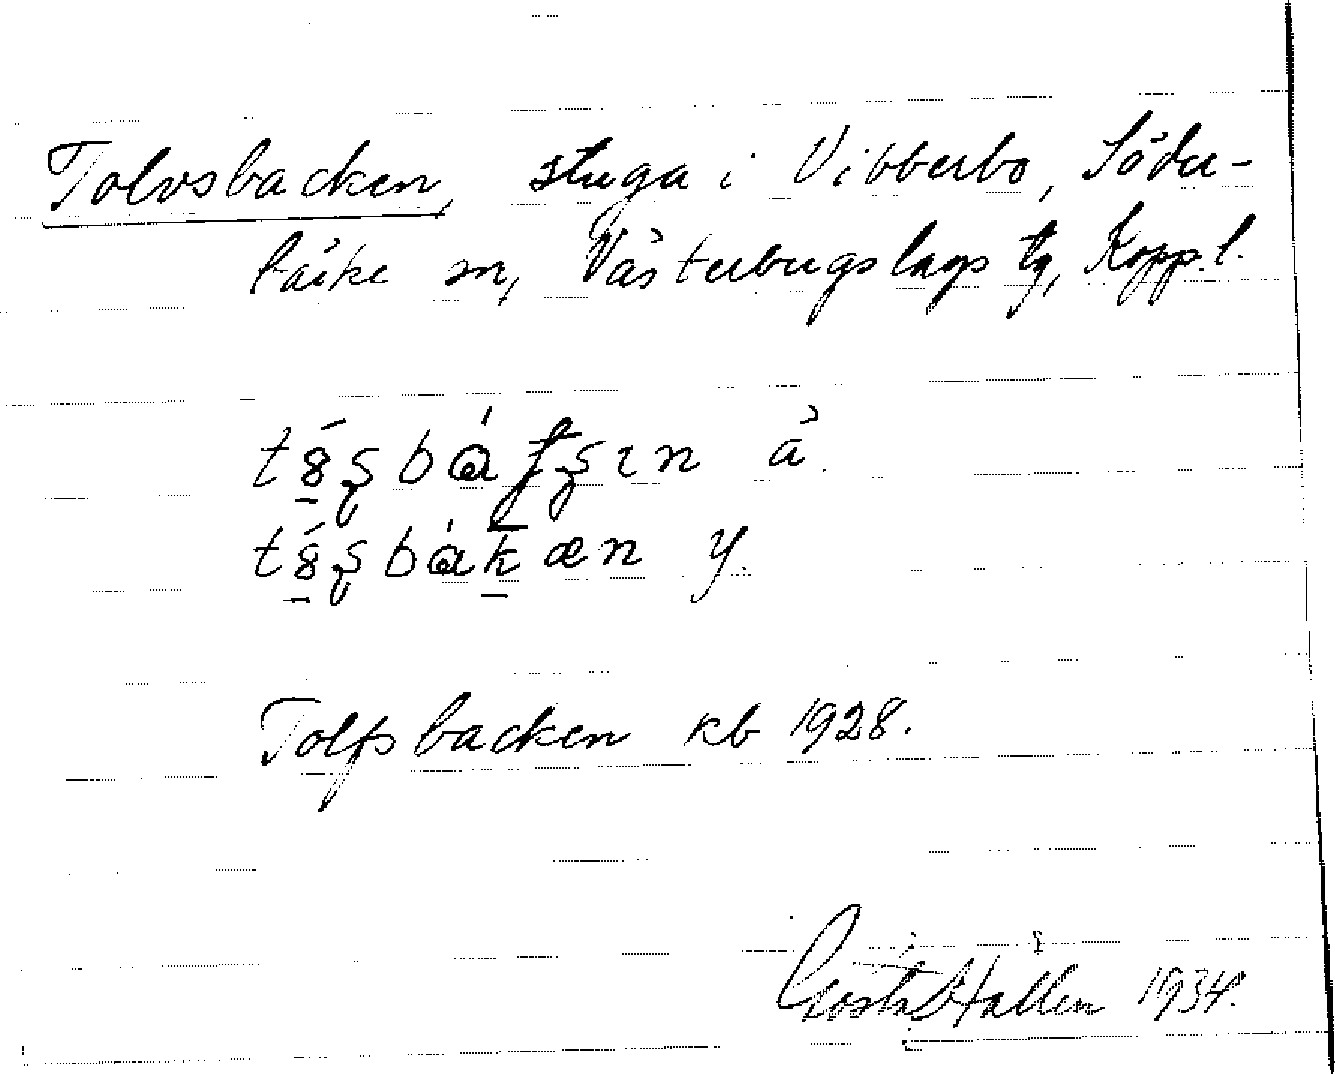 Tolvsbacken, stuga i Vibberbo, Söder-
bärke sn, Västerbergslags tg, Kopp. l.
tȣ́ʂbàʈʂɩn ä.
tȣ́ʂbàkæn y.
Tolfsbacken kb 1928.
Gösta Hallén 1934.